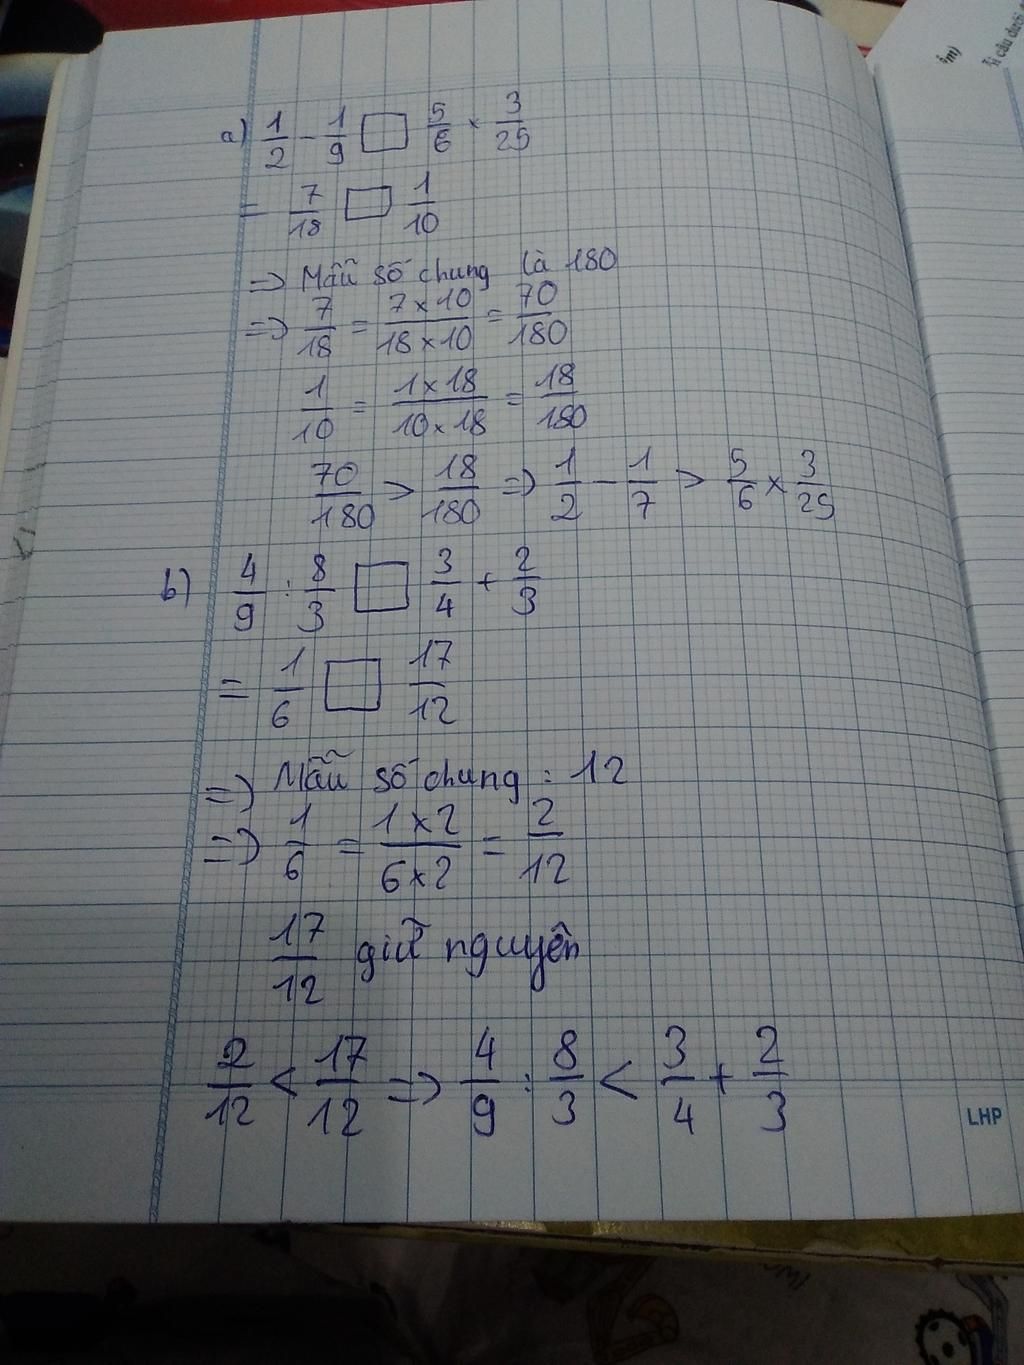 câu dưới đ
m)
a) 1/2 - 1/9 □ 5/6 × 3/25
= 7/18 □ 1/10
=> Mẫu số chung là 180
=> 7/18 = 7×10/18×10 = 70/180
1/10 = 1×18/10×18 = 18/180
70/180 > 18/180 => 1/2 - 1/7 > 5/6 × 3/25
b) 4/9 : 8/3 □ 3/4 + 2/3
= 1/6 □ 17/12
=> Mẫu số chung : 12
=> 1/6 = 1×2/6×2 = 2/12
17/12 giữ nguyên
2/12 < 17/12 => 4/9 : 8/3 < 3/4 + 2/3
LHP